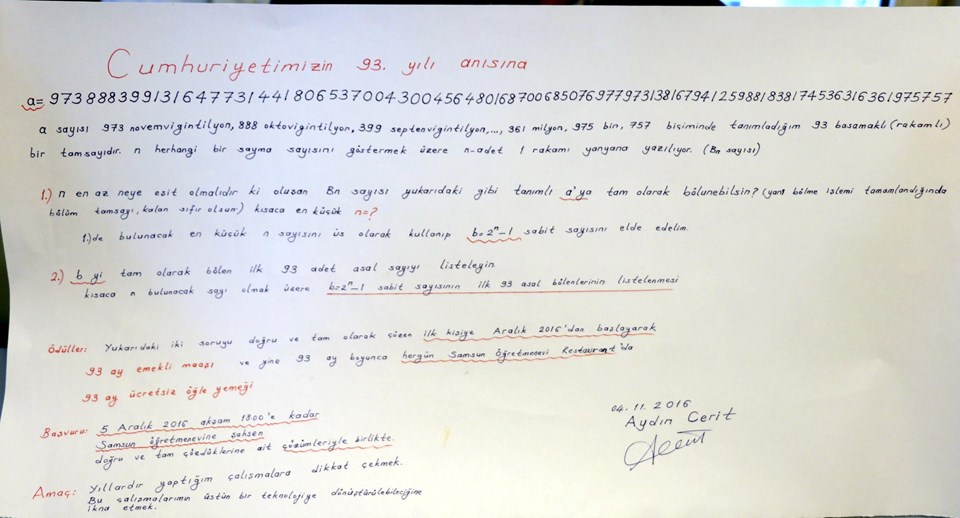 Cumhuriyetimizin 93. yılı anısına
a= 973888399131647731441806537004300456480168700685076977973138167941259881838174536316361975757
a sayısı 973 novemvigintilyon, 888 oktovigintilyon, 399 septenvigintilyon,..., 361 milyon, 975 bin, 757 biçiminde tanımladığım 93 basamaklı (rakamlı)
bir tamsayıdır. n herhangi bir sayma sayısını göstermek üzere n-adet 1 rakamı yanyana yazılıyor. (Bn sayısı)
1.) n en az neye eşit olmalıdır ki oluşan Bn sayısı yukarıdaki gibi tanımlı a'ya tam olarak bölünebilsin? (yani bölme işlemi tamamlandığında
bölüm tamsayı, kalan sıfır olsun) kısaca en küçük n=?
1.)de bulunacak en küçük n sayısını üs olarak kullanıp b=2ⁿ-1 sabit sayısını elde edelim.
2.) b yi tam olarak bölen ilk 93 adet asal sayıyı listeleyin.
kısaca n bulunacak sayı olmak üzere b=2ⁿ-1 sabit sayısının ilk 93 asal bölenlerinin listelenmesi
Ödüller: Yukarıdaki iki soruyu doğru ve tam olarak çözen ilk kişiye Aralık 2016'dan başlayarak
93 ay emekli maaşı ve yine 93 ay boyunca hergün Samsun Öğretmenevi Restaurant'da
93 ay ücretsiz öğle yemeği
Başvuru: 5 Aralık 2016 akşam 18:00'e kadar
Samsun öğretmenevine şahsen
doğru ve tam çözdüklerine ait çözümleriyle birlikte.
04.11.2016
Aydın Cerit
Amaç: Yıllardır yaptığım çalışmalara dikkat çekmek.
Bu çalışmalarımın üstün bir teknolojiye dönüştürülebileceğine
ikna etmek.